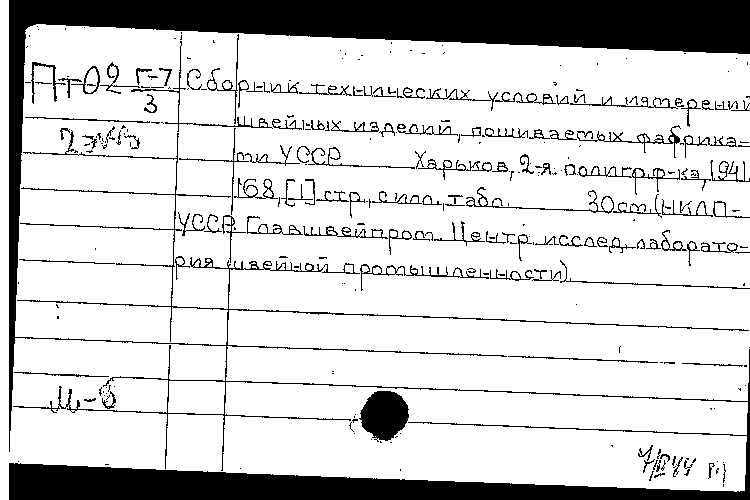 Пт02 Г-7/3 Сборник технических условий и измерений
швейных изделий, пошиваемых фабрика-
2 экз
ми УССР. Харьков, 2-я полигр. ф-ка, 1941.
168, [1] стр., с илл., табл. 30 см. (НКЛП-
УССР. Главшвейпром. Центр. исслед. лаборато-
рия швейной промышленности).
М-б